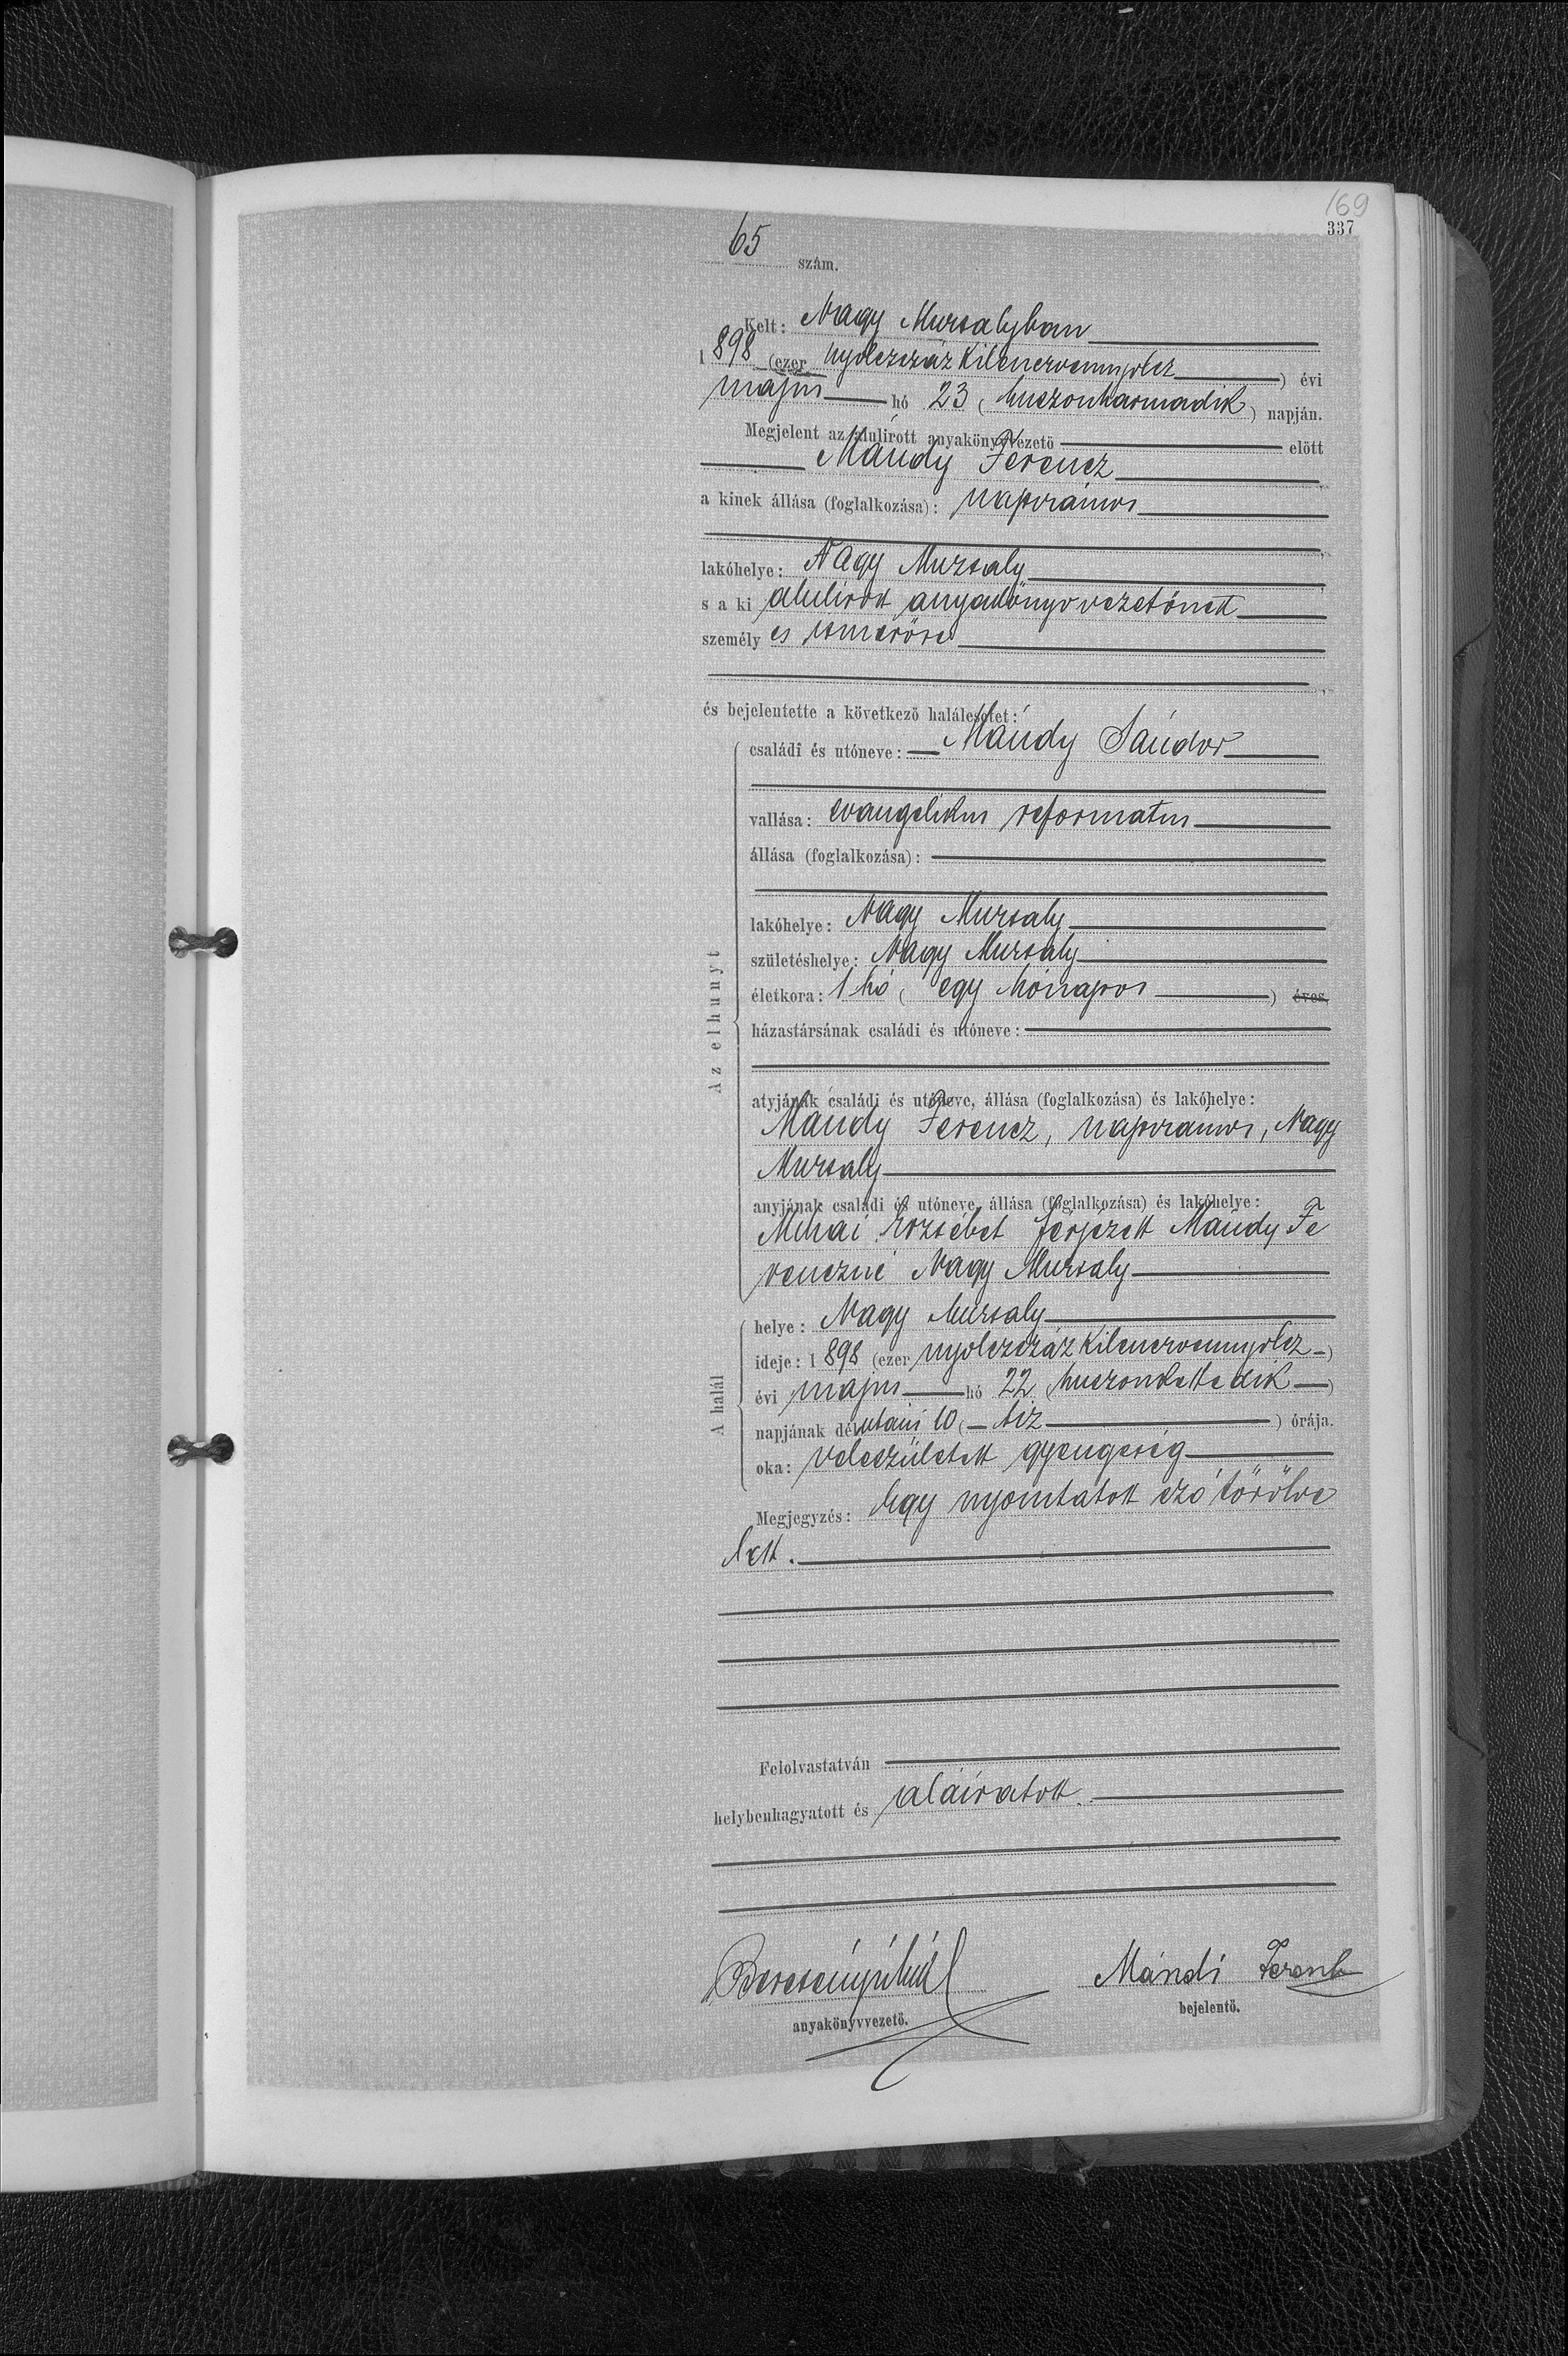 169
337
65 szám.
Kelt: Nagy Muzsalyban
1898 (ezer nyolczszáz kilenczvennyolcz) évi
május hó 23 (huszonharmadik) napján.
Megjelent az alulírott anyakönyvvezető előtt
Mándy Ferencz
a kinek állása (foglalkozása): napszámos
lakóhelye: Nagy Muzsaly
s a ki alulírott anyakönyvvezetőnek
személyes ismerőse
és bejelentette a következő halálesetet:
Az elhunyt
családi és utóneve: Mándy Sándor
vallása: evangelikus reformatus
állása (foglalkozása):
lakóhelye: Nagy Muzsaly
születéshelye: Nagy Muzsaly
életkora: 1 hó (egy hónapos) éves.
házastársának családi és utóneve:
atyjának családi és utóneve, állása (foglalkozása) és lakóhelye:
Mándy Ferencz, napszámos, Nagy
Muzsaly
anyjának családi és utóneve, állása (foglalkozása) és lakóhelye:
Mihái Erzsébet férjezett Mándy Fe
renczné Nagy Muzsaly
A halál
helye: Nagy Muzsaly
ideje: 1898 (ezer nyolczszáz kilenczvennyolcz)
évi május hó 22 (huszonkettedik)
napjának délutáni 10 (tiz) órája.
oka: veleszületett gyengeség
Megjegyzés: Egy nyomtatott szó törölve
lett.
Felolvastatván
helybenhagyatott és aláíratott.
Mándi Ferenc
anyakönyvvezető.
bejelentő.